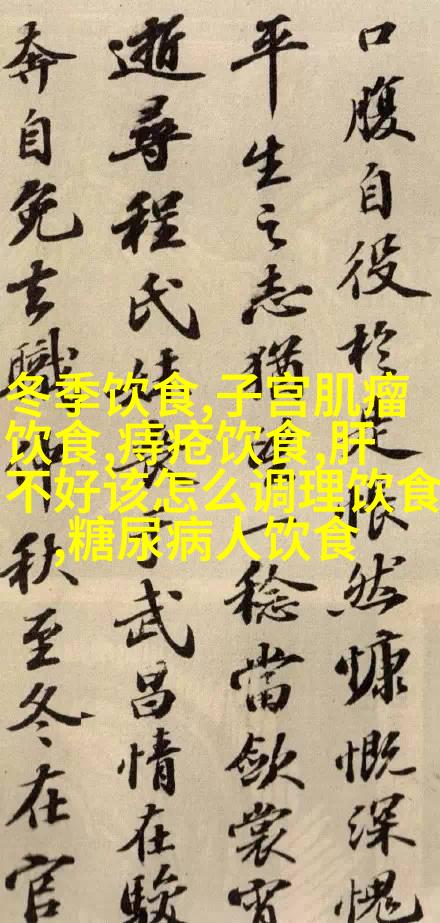 口腹自役於是悵然慷慨深愧
平生之志猶望一稔當斂裳宵
逝尋程氏妹喪于武昌情在駿
奔自免去職仲秋至冬在官
冬季饮食,子宫肌瘤
饮食,痔疮饮食,肝
不好该怎么调理饮食
,糖尿病人饮食